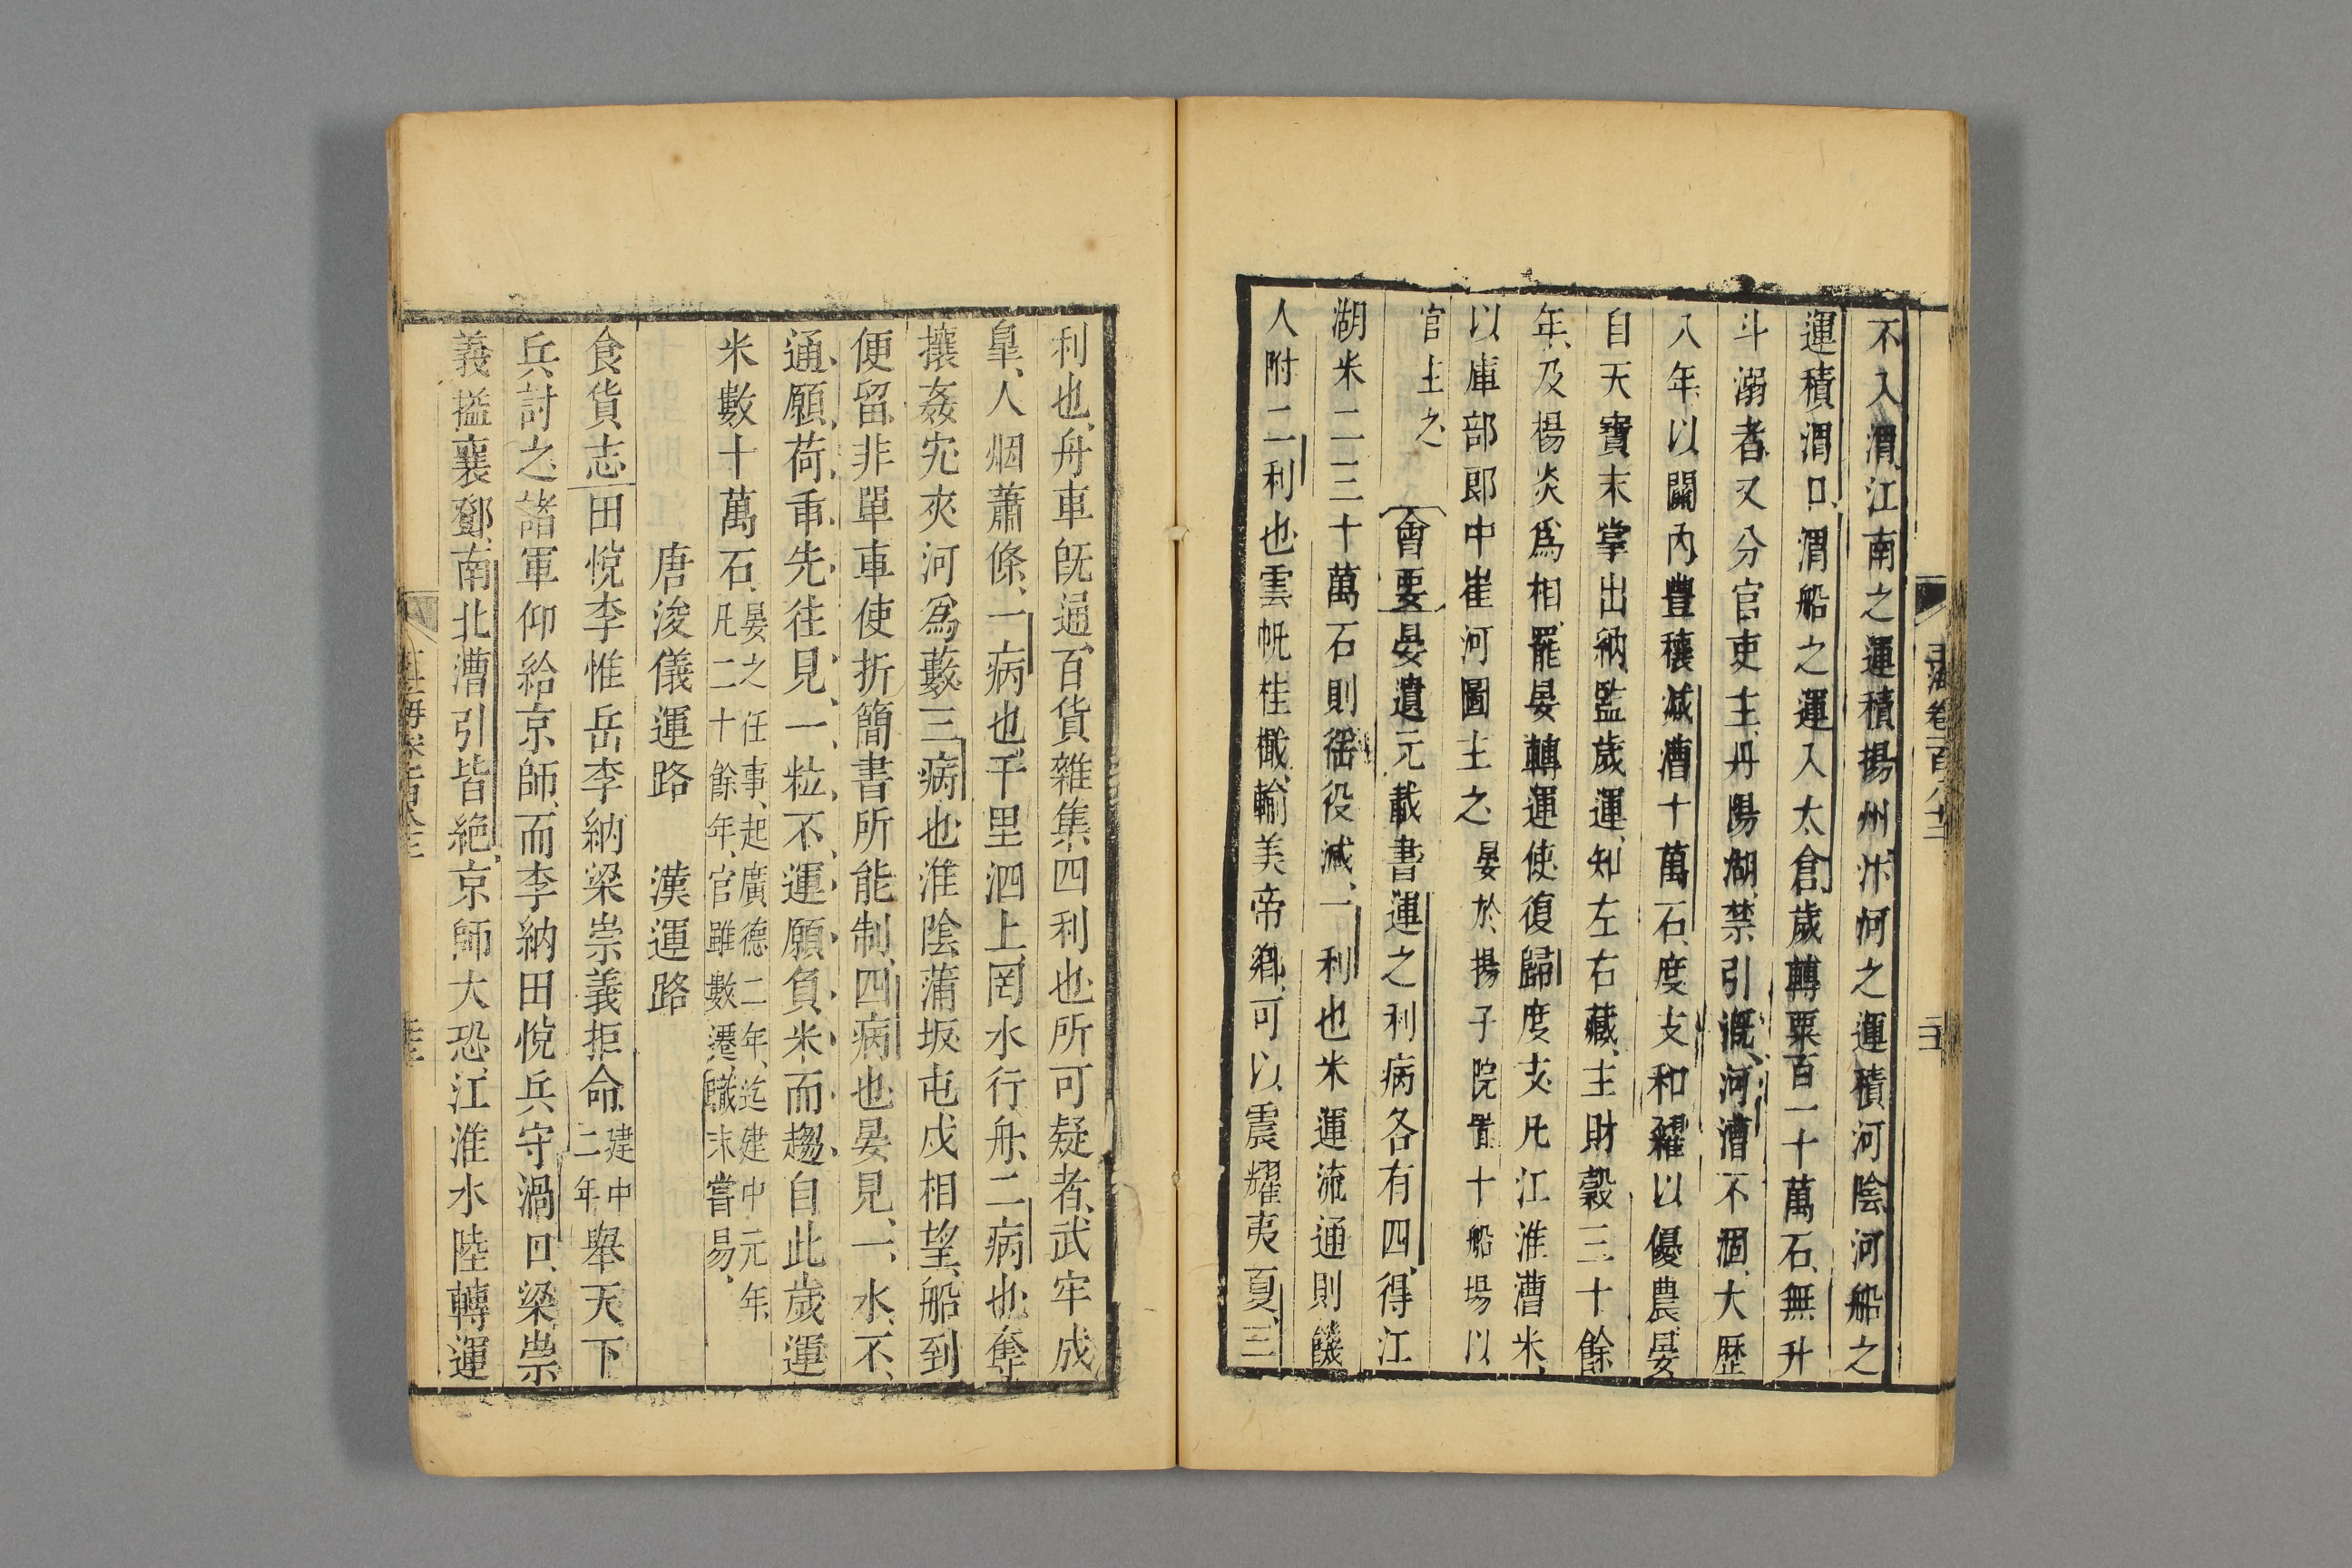 玉海卷一百八十二
不入渭江南之運積揚州汴河之運積河陰河船之
運積渭口渭船之運入太倉歲轉粟百一十萬石無升
斗溺者又分官吏主丹陽湖禁引漑河漕不涸大歷
八年以關內豊穰减漕十萬石度支和糴以優農晏
自天寶末掌出納監歲運知左右藏主財穀三十餘
年及楊炎爲相罷晏轉運使復歸度支凡江淮漕米
以庫部郎中崔河圖主之晏於揚子院置十船場以
官主之 會要晏遺元載書運之利病各有四得江
湖米二三十萬石則徭役減一利也米運流通則饑
人附二利也雲帆桂檝輸美帝鄉可以震耀夷夏三
利也舟車旣通百貨雜集四利也所可疑者武牢成
臯人烟蕭條一病也千里泗上罔水行舟二病也奪
攘姦宄夾河爲藪三病也淮陰蒲坂屯戍相望船到
便留非單車使折簡書所能制四病也晏見一水不
通願荷臿先往見一粒不運願負米而趨自此歲運
米數十萬石晏之任事起廣德二年迄建中元年
凡二十餘年官雖數遷職末嘗易
唐浚儀運路 漢運路
食貨志田悅李惟岳李納梁崇義拒命建中
二年舉天下
兵討之諸軍仰給京師而李納田悅兵守渦口梁崇
義搤襄鄧南北漕引皆絶京師大恐江淮水陸轉運